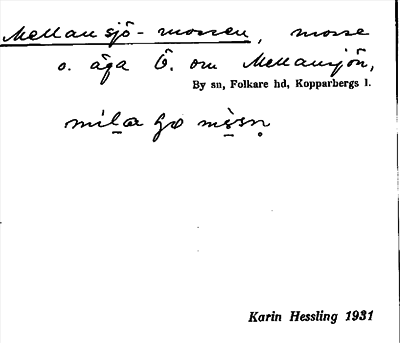 Mellansjö-mossen, mosse
o. äga Ö. om Mellansjön,
By sn, Folkare hd, Kopparbergs l.
Karin Hessling 1931